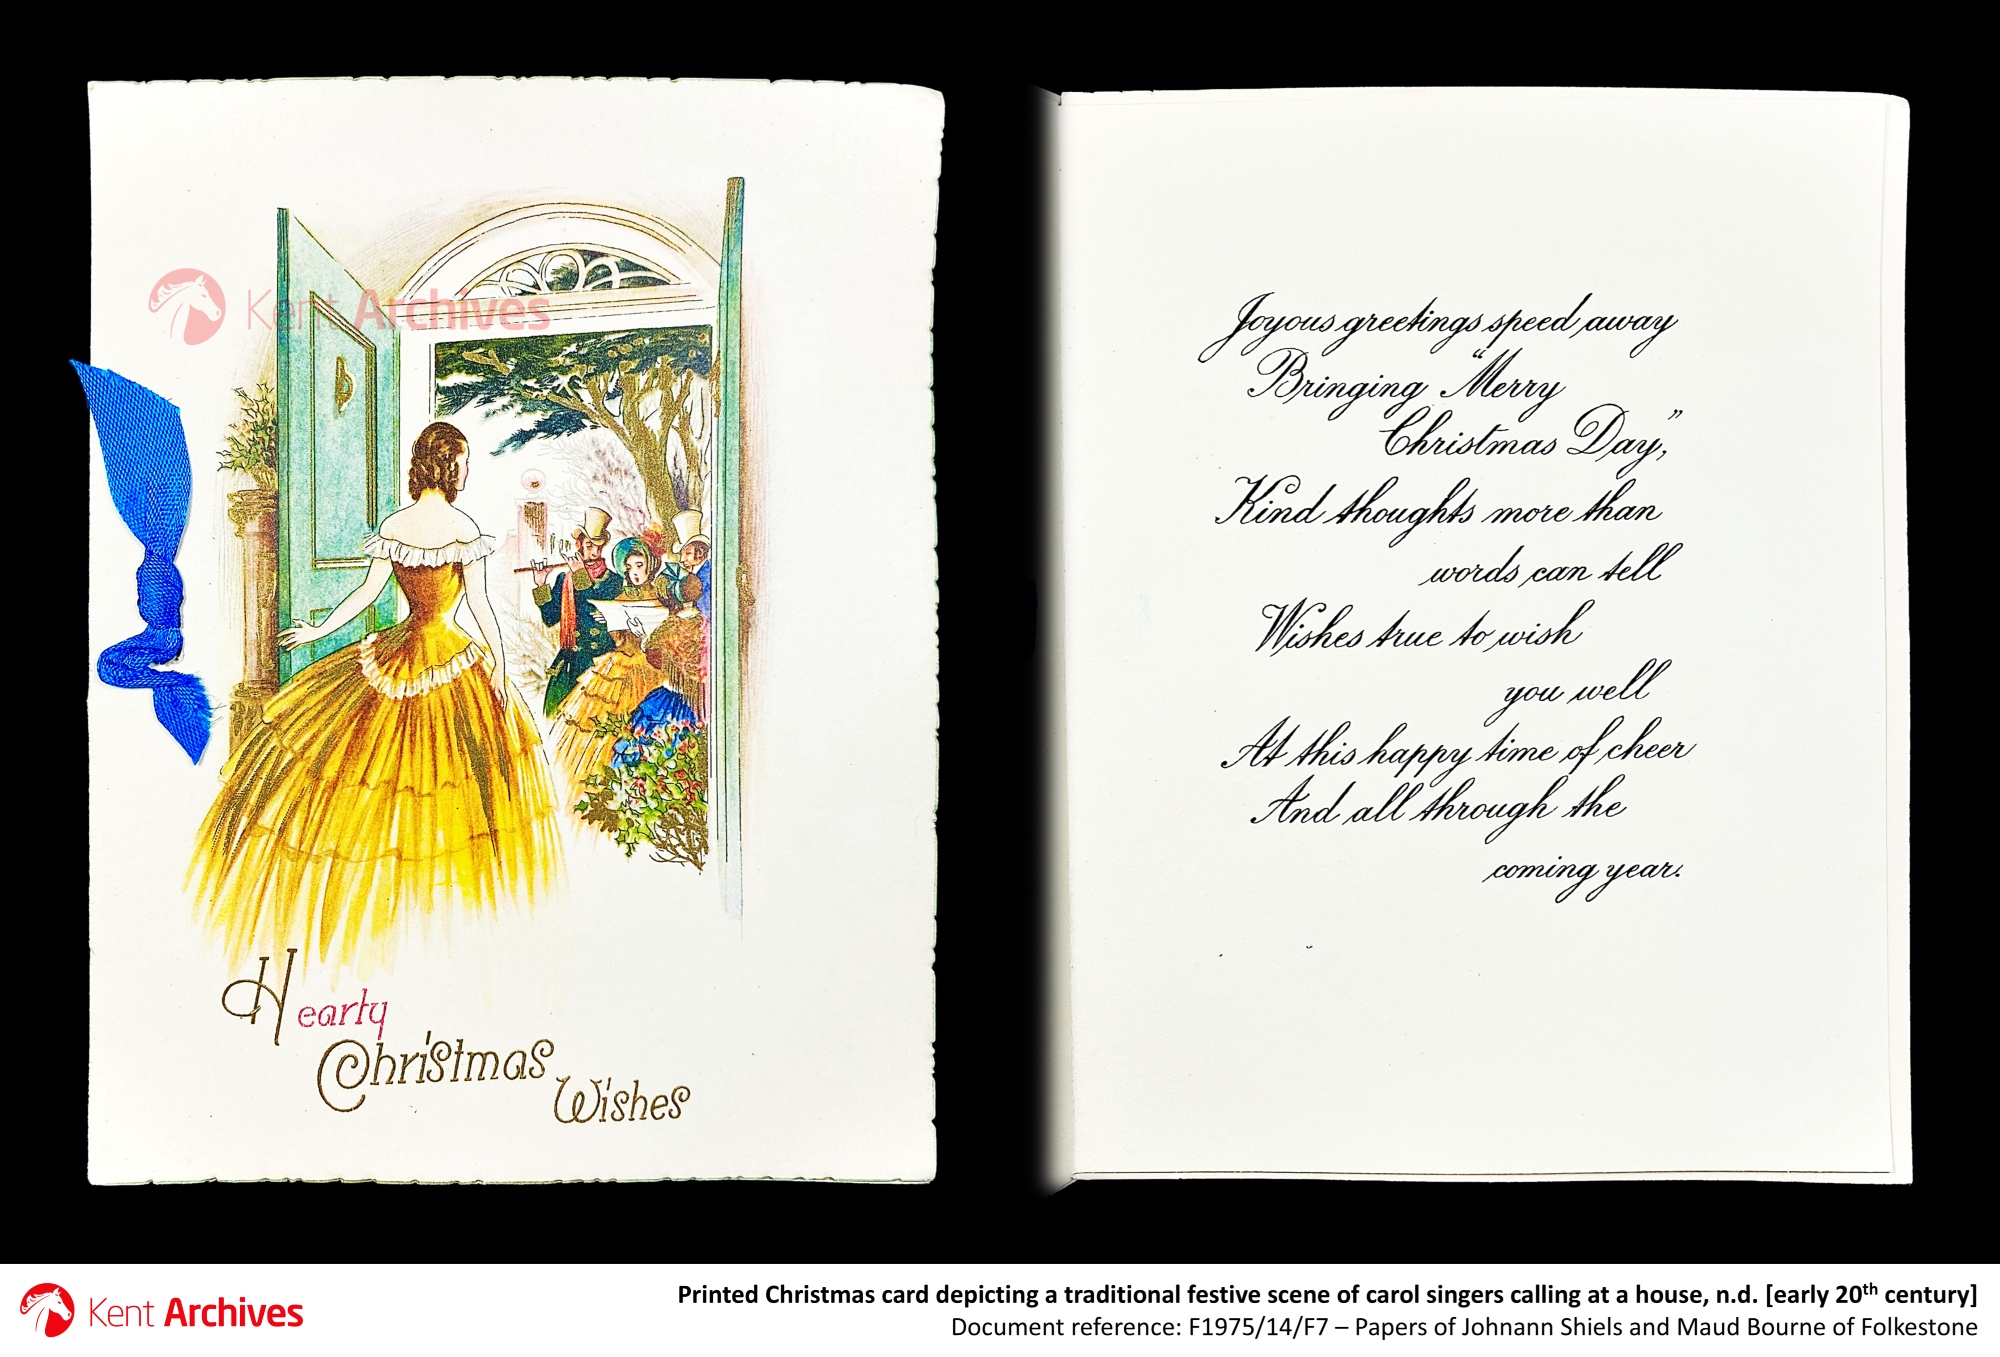 Kent Archives
Hearty
Christmas
Wishes
Joyous greetings speed away
Bringing "Merry
Christmas Day,"
Kind thoughts more than
words can tell
Wishes true to wish
you well
At this happy time of cheer
And all through the
coming year.
Kent Archives
Printed Christmas card depicting a traditional festive scene of carol singers calling at a house, n.d. [early 20th century]
Document reference: F1975/14/F7 – Papers of Johnann Shiels and Maud Bourne of Folkestone